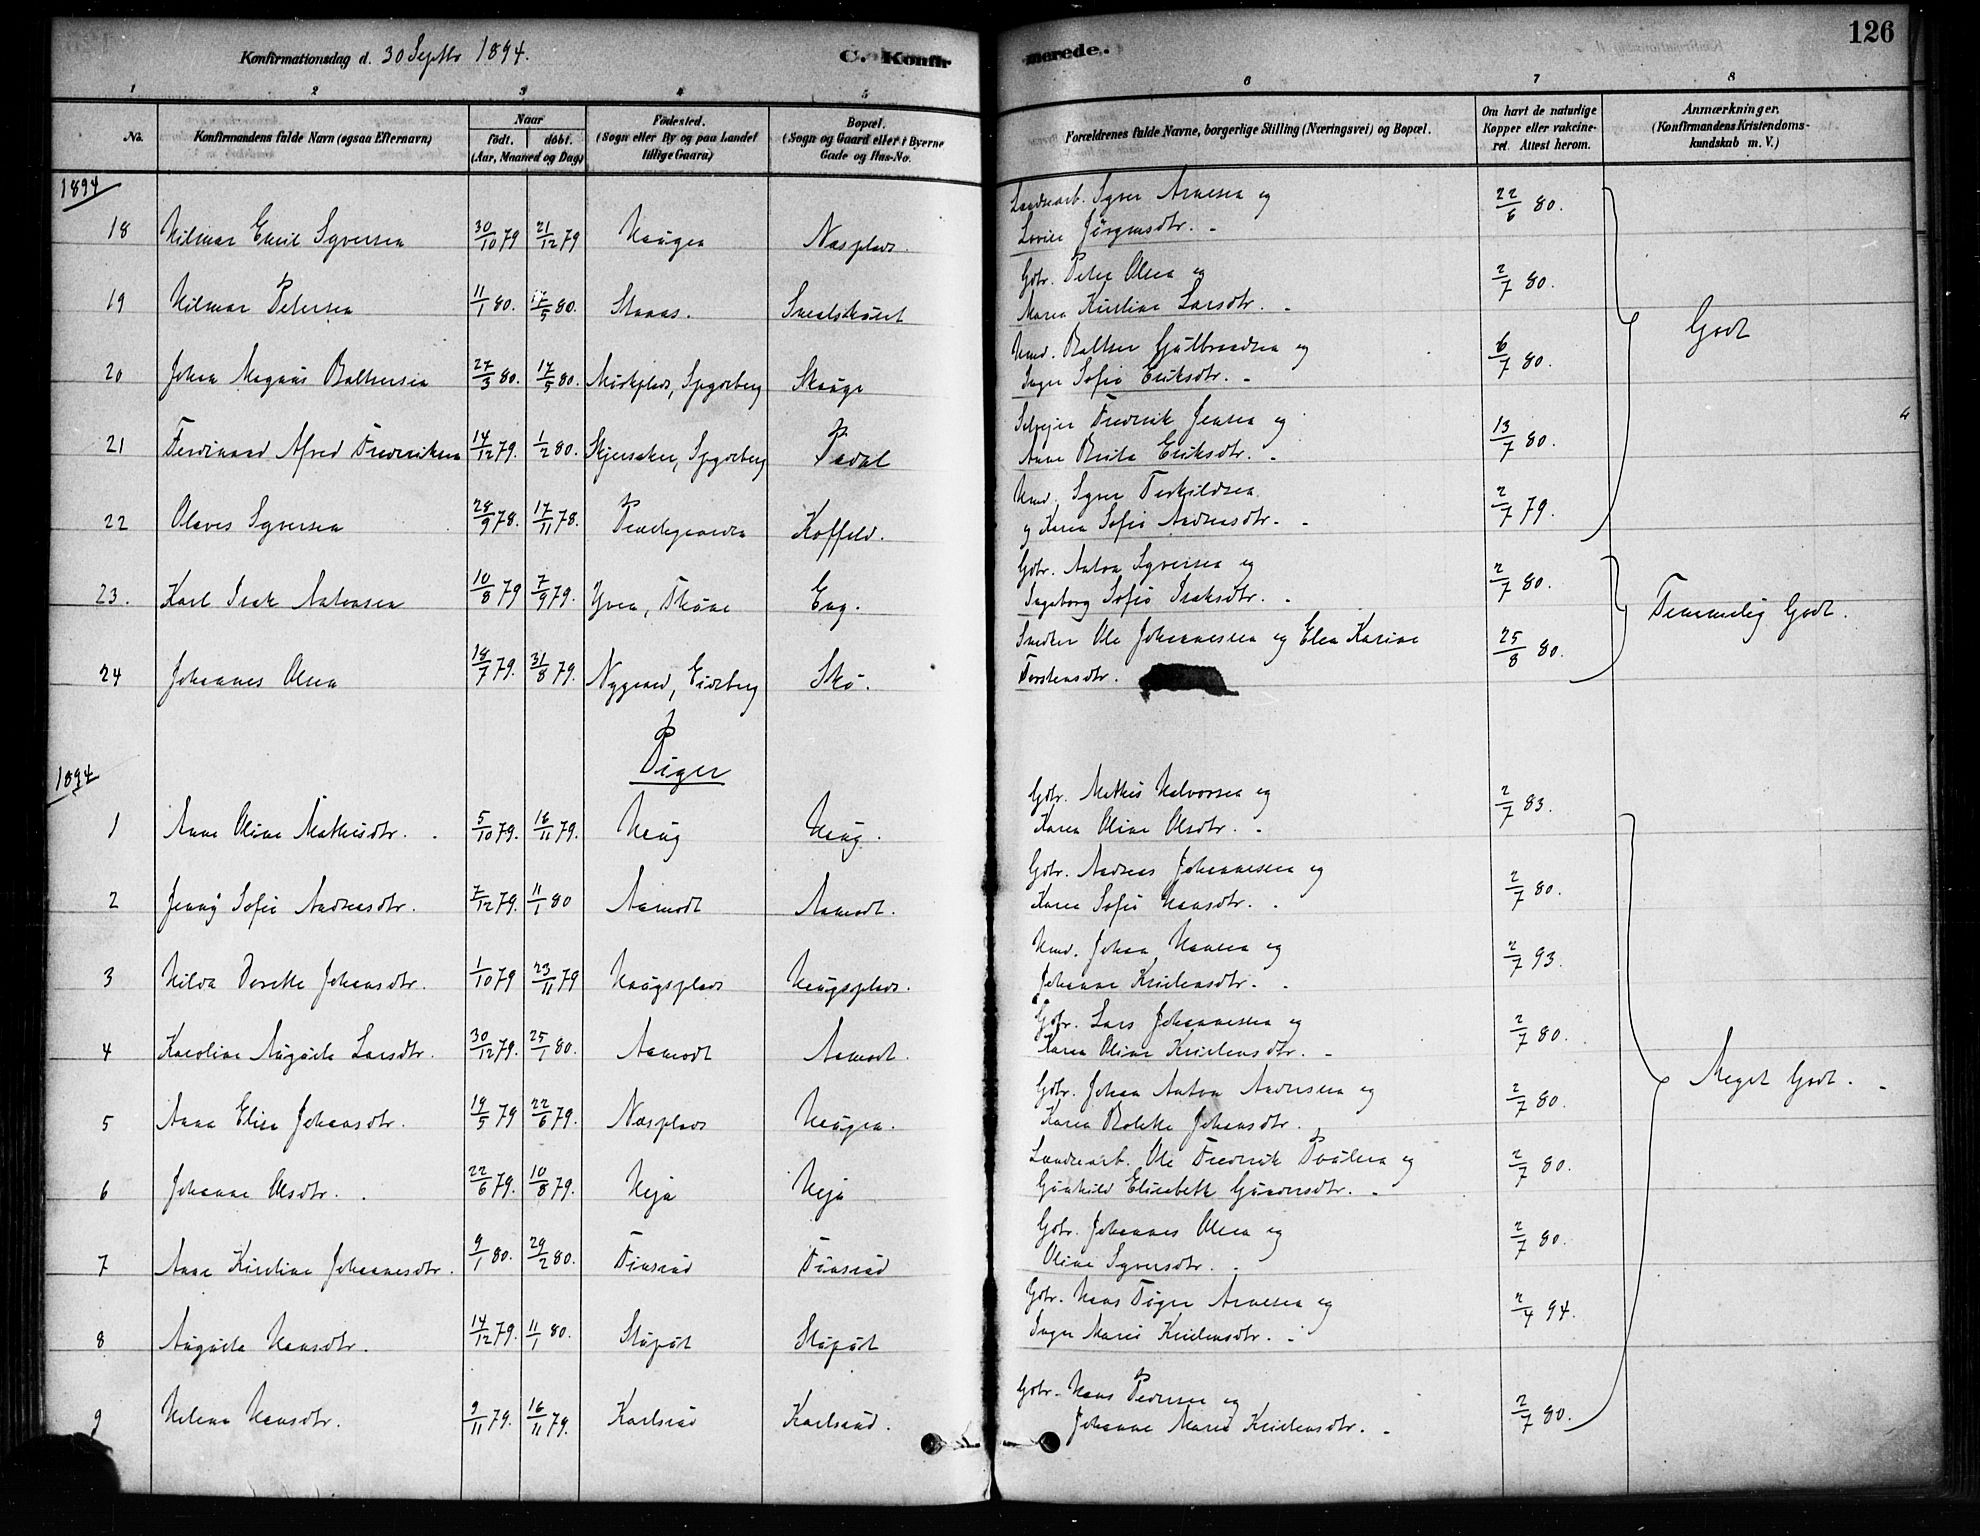 Konfirmationsdag d. 30 Septbr 1894.
C. Konfir
merede.
126
1 2 3 4 5 6 7 8
No.
Konfirmandens fulde Navn (ogsaa Efternavn)
Naar
født. døbt.
(Aar, Maaned og Dag)
Fødested.
(Sogn eller By og paa Landet
tillige Gaard)
Bopæl.
(Sogn og Gaard eller i Byerne
Gade og Hus-No.
Forældrenes fulde Navne, borgerlige Stilling (Næringsvei) og Bopæl.
Om havt de naturlige
Kopper eller vakcine-
ret. Attest herom.
Anmærkninger.
(Konfirmandens Kristendoms-
kundskab m. V.)
1894
18 Hilmar Emil Syversen 30/10 79 21/12 79 Haugen Næsplads. Syver Arnesen og Jørgensdtr. 22/6 80.
19 Hilmar Petersen 11/1 80. 17/5 80. Gdbr. Peter Olsen og
Maren Kristine Larsdtr. 2/7 80.
20 Johan Magnus Baltersen 27/3 80. 17/5 80. Spydeberg Skaugs Hmd. Balter Gulbrandsen og
Inger Sofie Eriksdtr. 6/7 80.
Godt
21 Ferdinand Alfred Fredriksen 14/12 79. 1/2 80. Skjersaker, Spydeberg Selvejer Fredrik Jensen og
Anne Berta Eriksdtr. 13/7 80.
22 Olaves Syversen 28/9 78. 17/11 78. Præstegaarden Hmd. Syver Terkildsen
og Karen Sofie Andreasdtr. 2/7 79.
23. Karl Isak Antonsen 10/8 79 7/9 79. Eng. Gdbr. Anton Syversen og
Ingeborg Sofie Isaksdtr. 2/7 80.
Temmelig Godt.
24 Johannes Olsen 18/7 79. 31/8 79. Nygaard, Eidsberg Skø. Snedker Ole Johannessen og Elen Karine
Torstensdtr. 25/8 80.
Piger
1894
1 Anne Oline Mathisdtr. 5/10 79. 16/11 79. Haug Haug. Gdbr. Mathis Halvorsen og
Karen Oline Olsdtr. 2/7 83.
2 Jenny Sofie Andreasdtr. 7/12 79. 11/1 80 Aamodt Aamodt. Gdbr. Andreas Johannessen og
Karen Sofie Hansdtr. 2/7 80.
3 Hilda Dorthe Johansdtr. 1/10 79 23/11 79 Haugsplads Haugsplads. Hmd. Johan Hansen og
Johanne Kristensdtr. 2/7 93.
4 Karoline Augusta Larsdtr. 30/12 79. 25/1 80. Aamodt Aamodt. Gdbr. Lars Johannessen og
Karen Oline Kristensdtr. 2/7 80.
Meget Godt.
5 Anna Elise Johansdtr. 19/5 79 22/6 79. Næsplads Haugen. Gdbr. Johan Anton Andersen og
Karen Bolette Johansdtr. 2/7 80.
6 Johanne Olsdtr. 22/6 79. 10/8 79. Heja Heja Landarb. Ole Fredrik Poulsen og
Gunhild Elisabeth Gudersdtr. 2/7 80.
7 Anne Kirstine Johannesdtr. 9/1 80. 29/2 80. Finsrud Finsrud Gdbr. Johannes Olsen og
Oline Syversdtr. 2/7 80.
8 Augusta Hansdtr. 14/12 79. 11/1 80. Gdbr. Hans Tiger Arnesen og
Inger Marie Kristensdtr. 2/4 94.
9 Helene Hansdtr. 9/11 79. 16/11 79. Karlsrud Karlsrud. Gdbr. Hans Pedersen og
Johanne Marie Kristensdtr. 2/7 80.